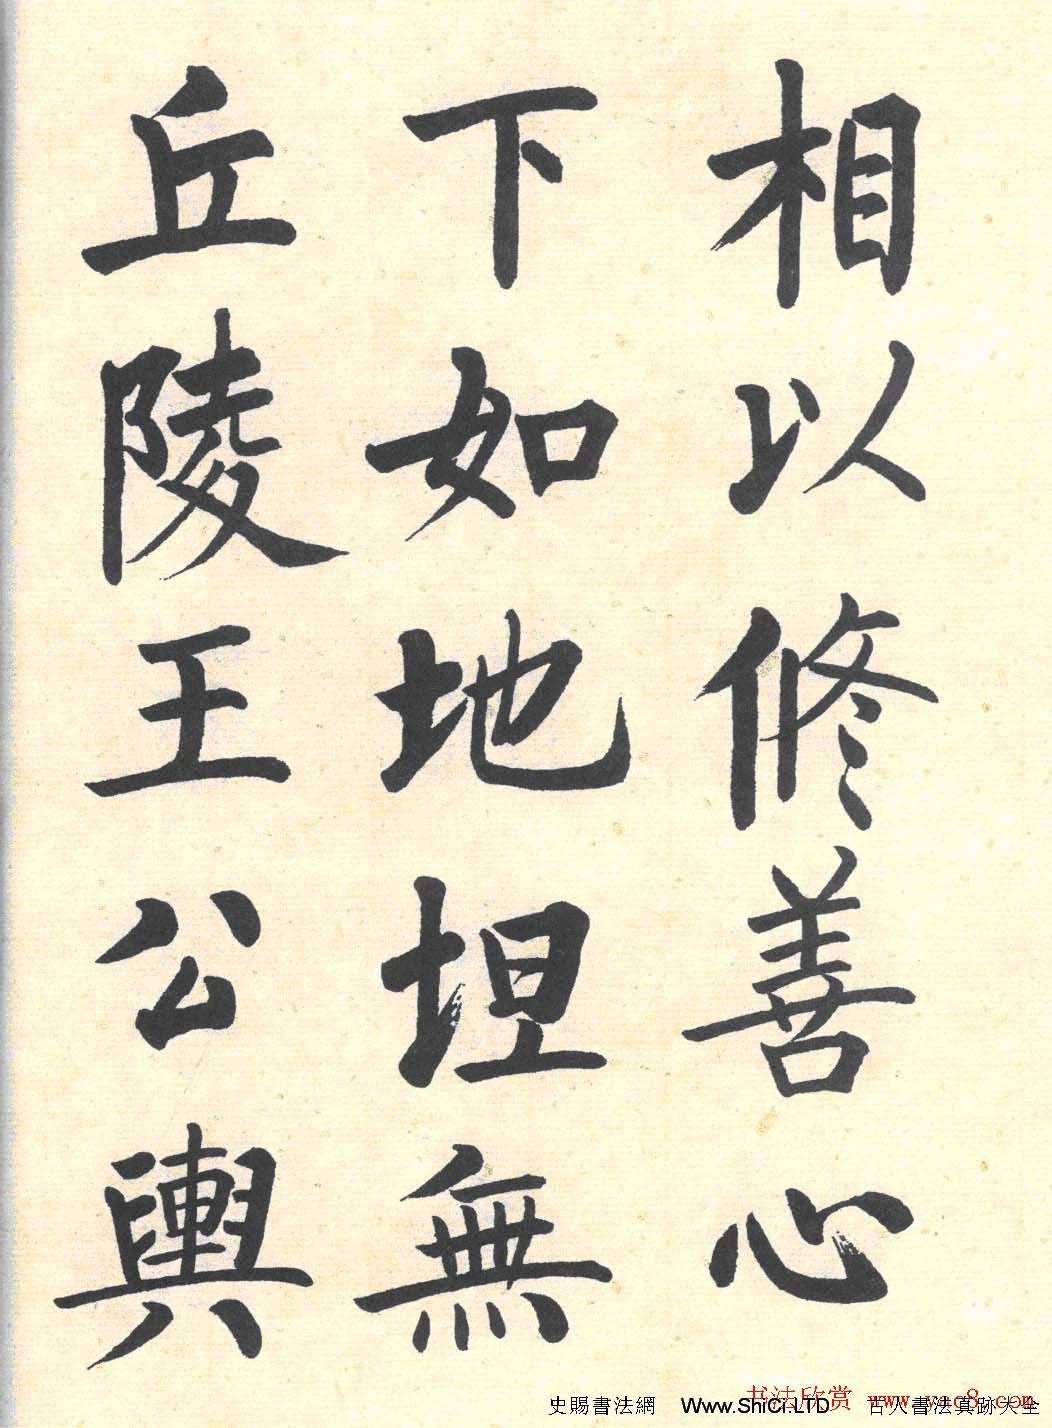 相以修善心
下如地坦無
丘陵王公輿
史賜書法網 Www.ShiCi.LTD 古人書法真跡大全
书法欣赏 www.yac8.com